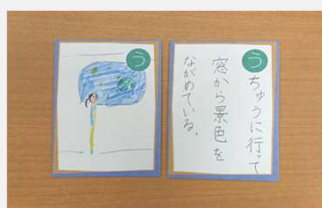 う
うちゅうに行って
窓から景色を
ながめている。